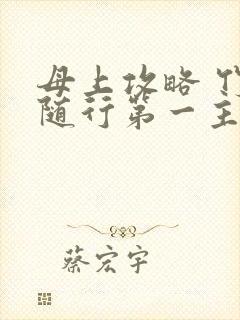 母上攻略
随行第一主
蔡宏宇